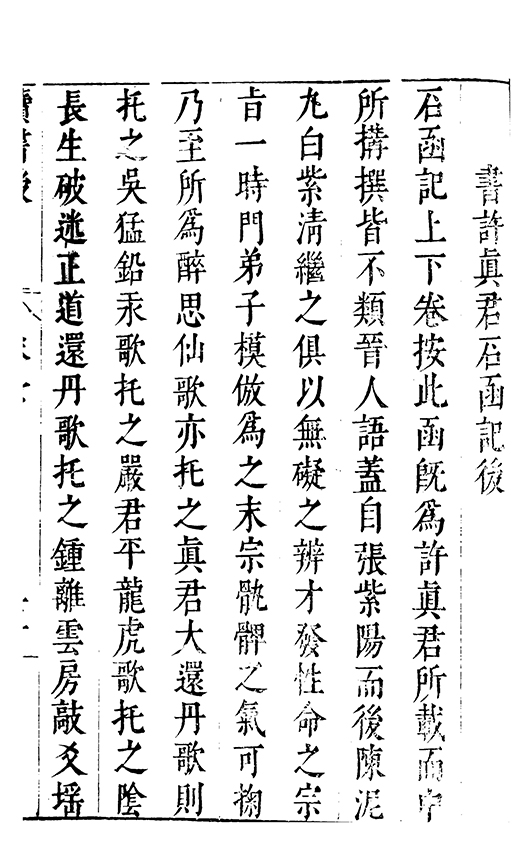 書許眞君石函記後
石函記上下卷按此函旣爲許眞君所載而中
所搆撰皆不類晉人語蓋自張紫陽而後陳泥
丸白紫淸繼之俱以無礙之辨才發性命之宗
旨一時門弟子模倣爲之末宗骩髀之氣可掬
乃至所爲醉思仙歌亦托之眞君大還丹歌則
托之吳猛鉛汞歌托之嚴君平龍虎歌托之陰
長生破迷正道還丹歌托之鍾離雲房敲爻塔
讀書後